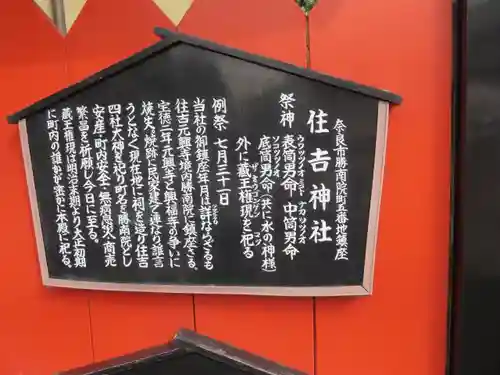 奈良市勝南院町五番地鎮座
住吉神社
ウワツツノオノミコト ナカツツノオ
祭神 表筒男命・中筒男命
ソコツツノオ
底筒男命(共に水の神様)
ザオウゴンゲン
外に蔵王権現を祀る
例祭 七月三十一日
当社の御鎮座年月は詳ならざるも
住吉元興寺境内勝南院に鎮座さる。
宝徳三年元興寺と興福寺の争いに
焼失、焼跡に民家建ち連なり誰言
うとなく現在地に祠を造り住吉
四社大神を祀り町名を勝南院とし
安産・町内安全・無病息災・商売
繁昌を祈願し今日に至る。
蔵王権現は明治末期より大正初期
に町内の誰かが密かに本殿に祀る。